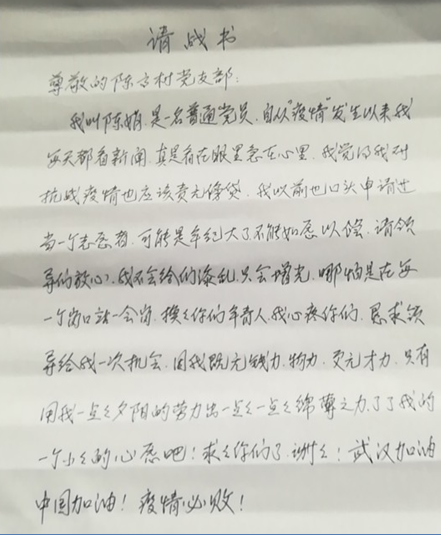 请战书
尊敬的陈方村党支部:
我叫陈娟,是一名普通党员,自从"疫情"发生以来我
每天都看新闻,真是看在眼里急在心里,我觉得我对
抗战疫情也应该责无傍贷。我以前也口头申请过
当一个志愿者,可能是年纪大了不能如愿以偿,请领
导们放心,我不会给们添乱,只会增光,哪怕是在每
一个岗口站一会岗,换々你们年青人,我心疼你们。恳求领
导给我一次机会,因我既无钱力、物力、更无才力,只有
用我一点々夕阳的劳力出一点々一点々绵薄之力,了了我的
一个小々的心愿吧!求々你们了,谢々!武汉加油
中国加油!疫情必败!